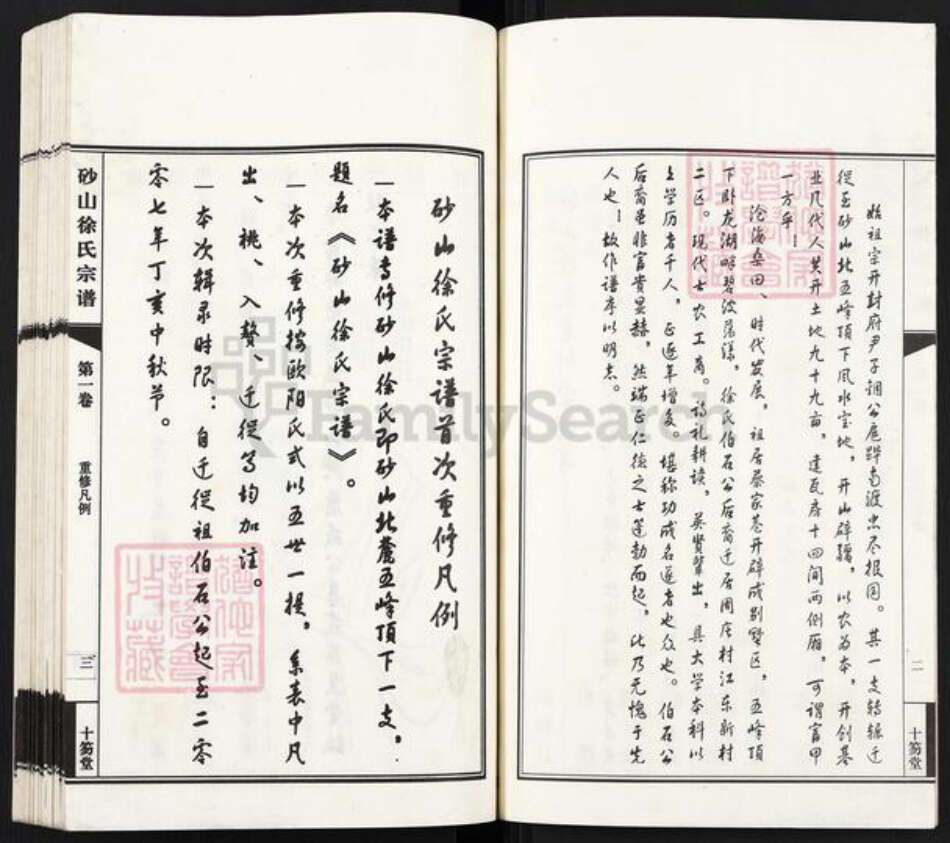 始祖宗开封府尹子诇公扈跸南渡忠尽报国。其一支转辗迁
从至砂山北五峰顶下风水宝地,开山辟疆,以农为本,开创基
业几代人共开土地九十九亩,建瓦房十四间两侧厢,可谓富甲
一方乎!
沧海桑田、时代发展,祖居蔡家巷开辟成别墅区,五峰顶
下卧龙湖畔碧波荡漾,徐氏伯石公后裔迁居周庄村江东新村
二区。现代士农工商。诗礼耕读,英贤辈出,具大学本科以
上学历者千人,正逐年增多。堪称功成名遂者也众也。伯石公
后裔虽非富贵显赫,然端正仁德之士蓬勃而起,此乃无愧于先
人也!故作谱序以明志。
二
十笏堂
砂山徐氏宗谱首次重修凡例
一本谱专修砂山徐氏即砂山北麓五峰顶下一支,
题名《砂山徐氏宗谱》。
一本次重修按欧阳氏式以五世一提,系表中凡
出、祧、入赘、迁徙等均加注。
一本次辑录时限:自迁徙祖伯石公起至二零
零七年丁亥中秋节。
砂山徐氏宗谱
第一卷
重修凡例
三
十笏堂
FamilySearch